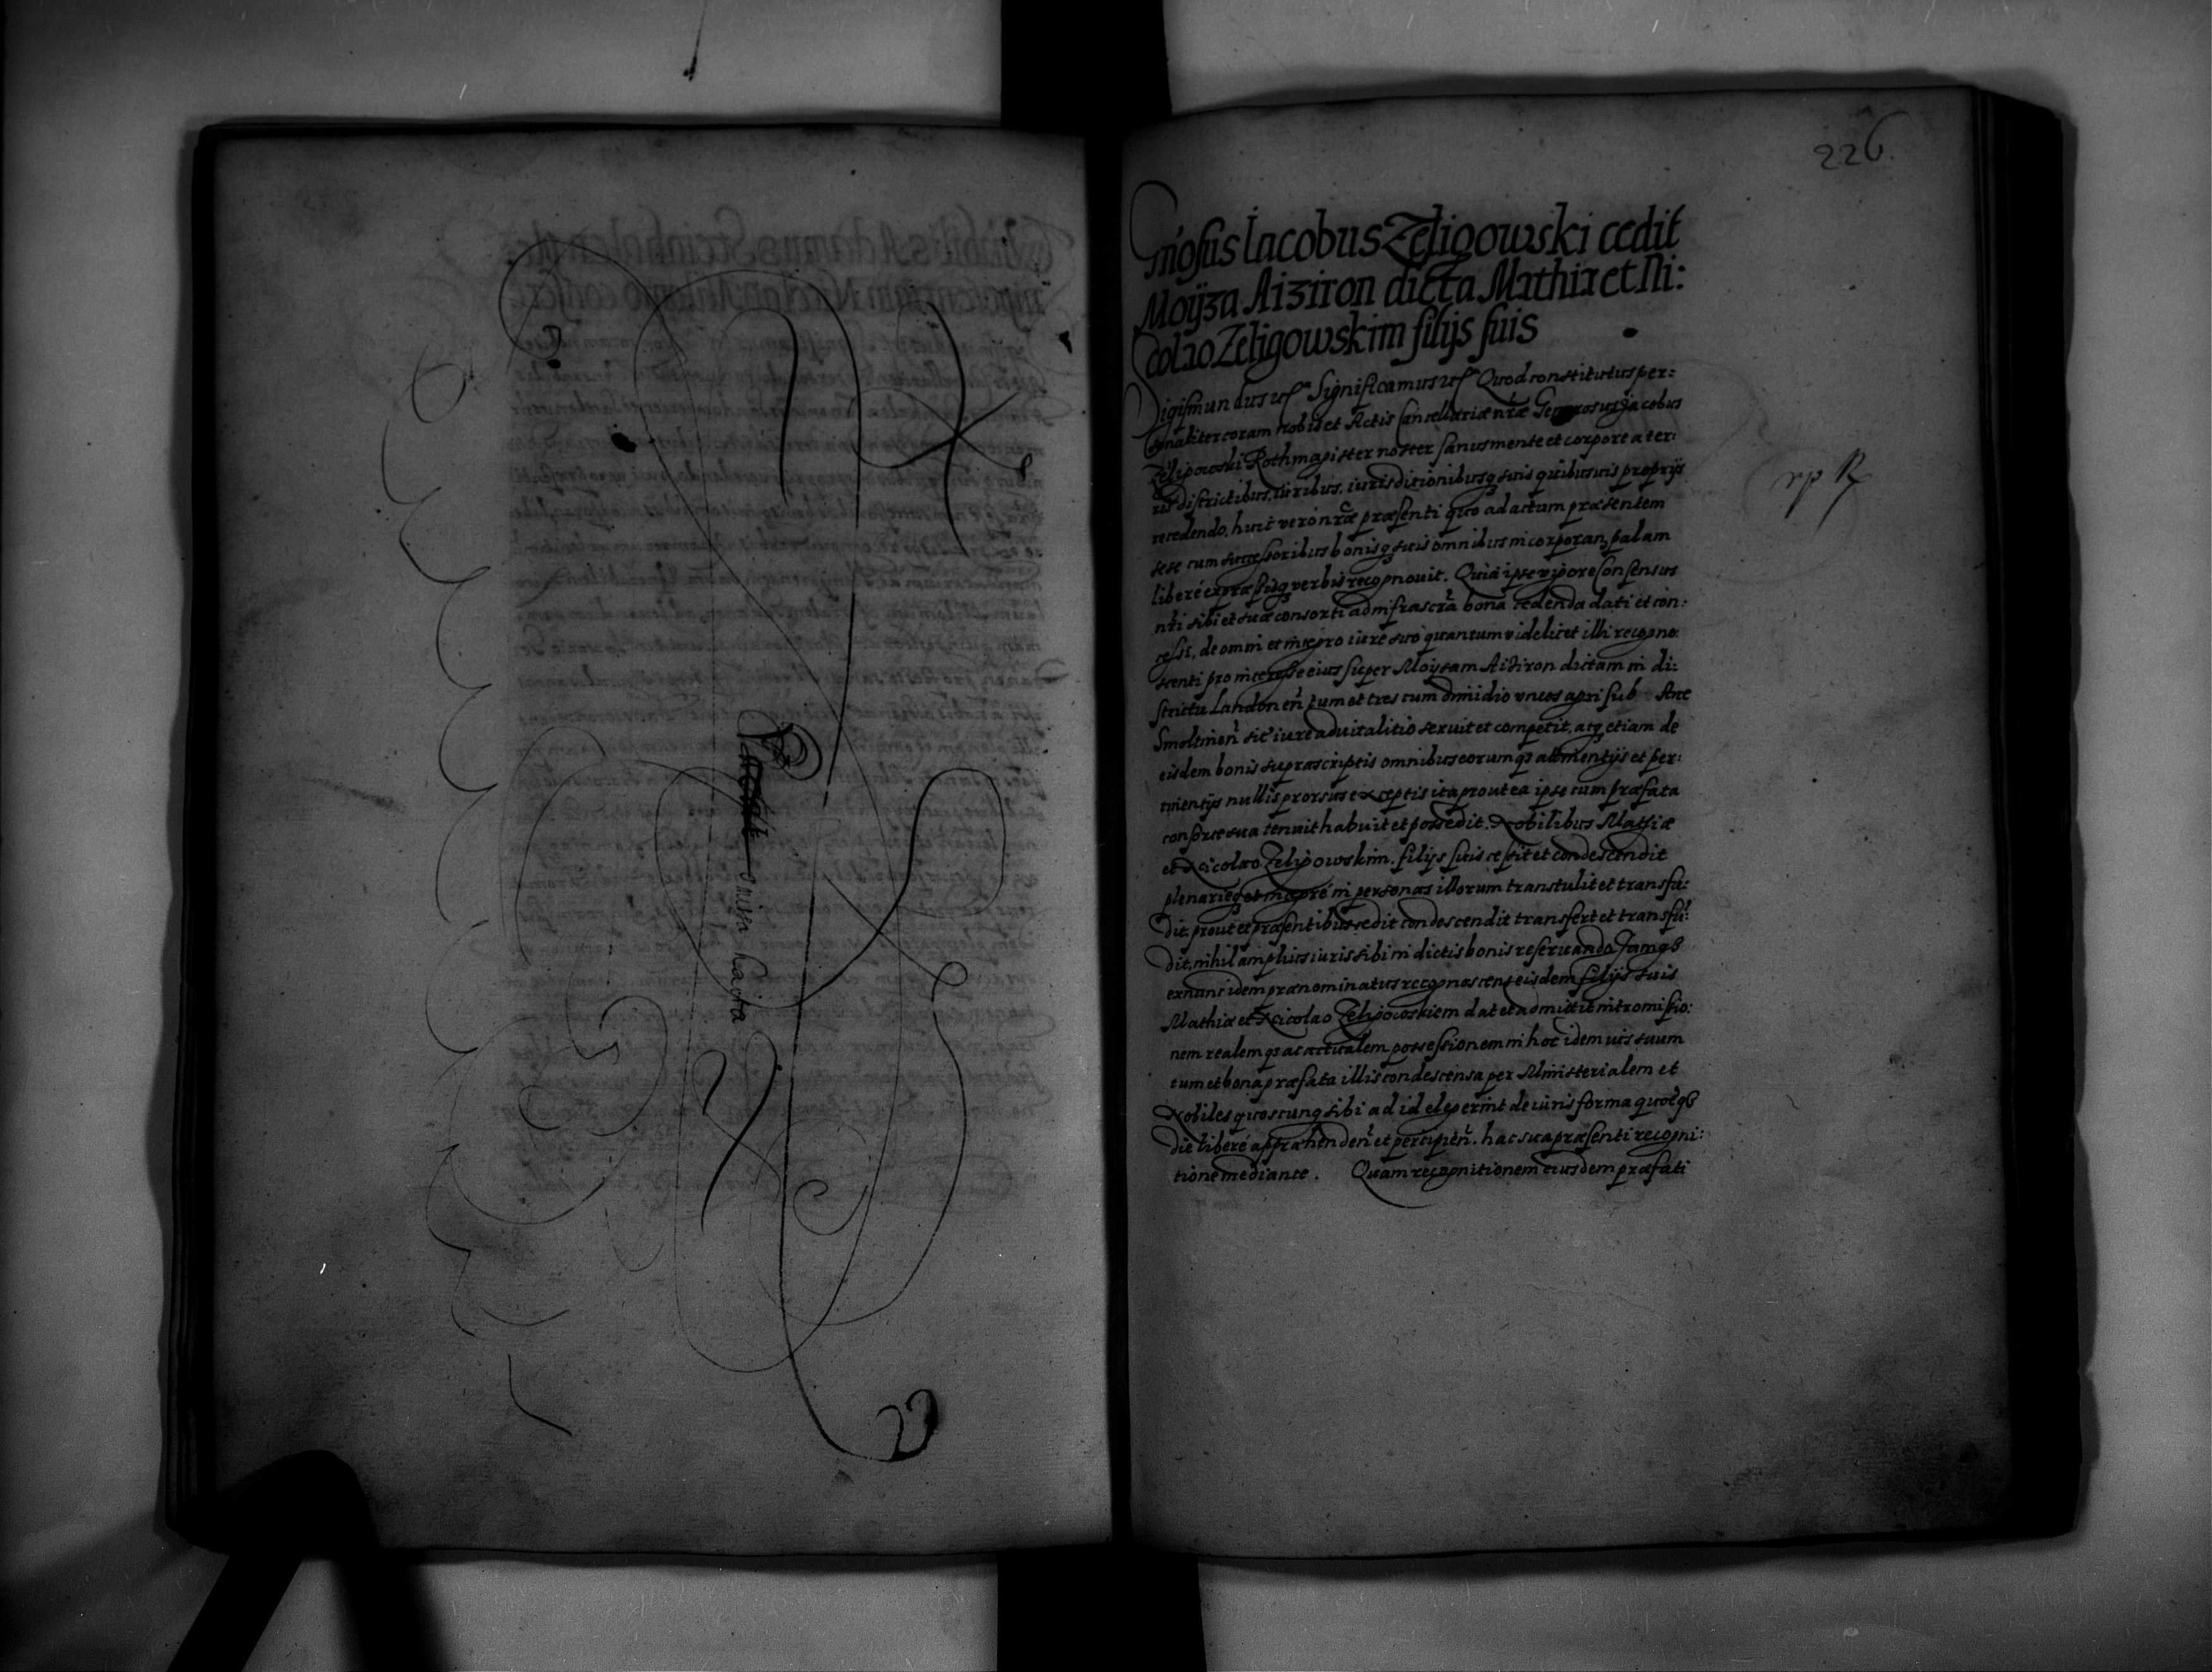 226.
Gnosus Iacobus Zeligowski cedit
Moÿza Aiziron dicta Mathiæ et Ni:
colao Zeligowskim filijs suis
Sigismundus etc. Significamus etc. Quod constitutus per:
sonaliter coram nobis et Actis Cancellariæ nr̃æ Generosus Jacobus
Zeligowski Rothmagister noster sanus mente et corpore a ter:
ris districtibus, iuribus, iurisditionibusq̃ suis quibusuis proprijs
recedendo, huic vero nr̃æ præsenti quo ad actum præsentem
sese cum successoribus bonisq̃ suis omnibus incorporan, palam
liberè expræssisq̃ verbis recognouit. Quia ipse vigore Consensus
nr̃i sibi et suæ consorti ad infrascr̃a bona cedenda dati et con:
cessit, de omni et integro iure suo quantum videlicet illi recogno:
scenti pro interesse eius super Moysam Aiziron dictam in di:
strictu Landonen̄ tum et tres cum dimidio vncos agri sub Arce
Smoltinen̄ sit iure aduitalitio seruit et competit, atq̃ etiam de
eisdem bonis suprascriptis omnibus eorumq̃ attinentijs et per:
tinentijs nullis prorsus exceptis ita prout ea ipse cum præfata
consorte sua tenuit habuit et possedit. Nobilibus Mathiæ
et Nicolao Zeligowskim. filijs suis cessit et condescendit
plenarieq̃ et integrè in personas illorum transtulit et transfu:
dit, prout et præsentibus cedit condescendit transfert et transfu:
dit, nihil amplius iuris sibi in dictis bonis reseruando. Jamq̃
ex nunc idem prænominatus recognoscens eisdem filijs suis
Mathiæ et Nicolao Zeligowskiem dat et admittit intromissio:
nem realemq̃ ac actualem possessionem in hoc idem ius suum
tum et bona præfata illis condescensa per Ministerialem et
Nobiles quoscunq̃ sibi ad id elegerint de iuris forma quotq̃
die liberè apprahenden̄ et percipien̄. hac sua præsenti recogni:
tione mediante. Quam recognitionem eiusdem præfati